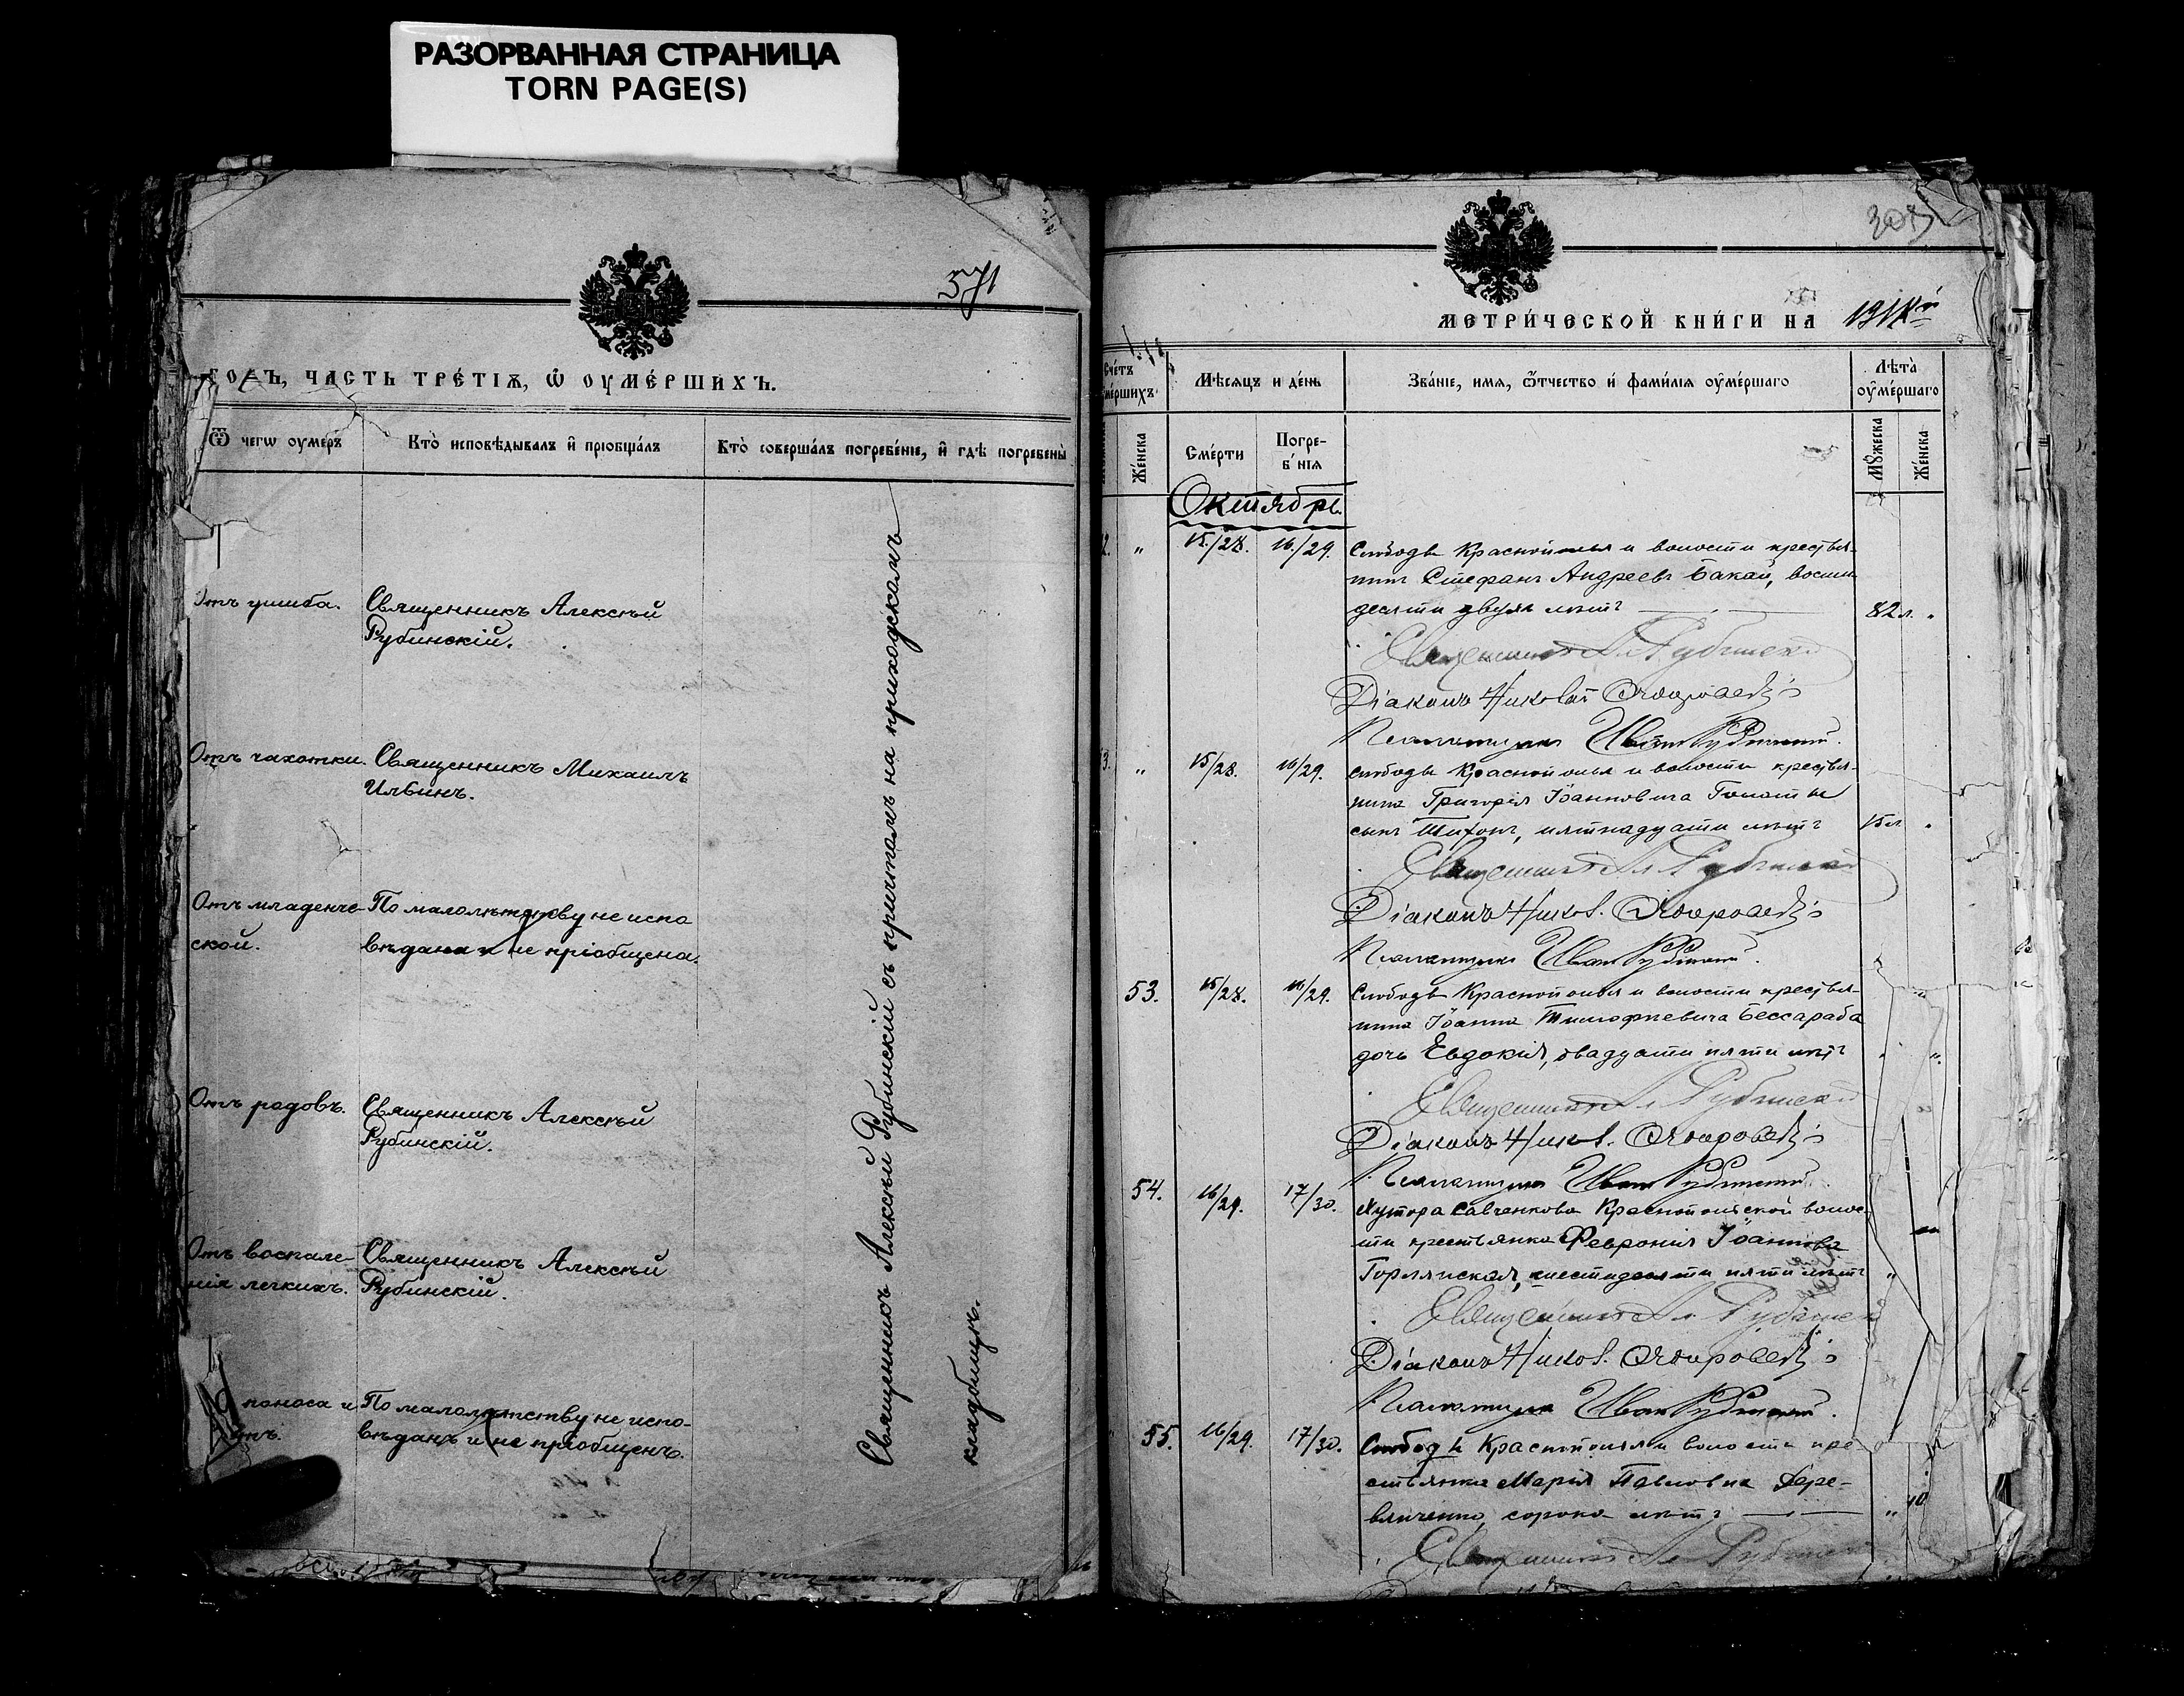 РАЗОРВАННАЯ СТРАНИЦА
TORN PAGE(S)
571
ГОДЪ, ЧАСТЬ ТРЕ́ТІѦ, Ѿ ОУМЕ́РШИХЪ.
Ѿ чегѡ оумеръ
Кто̀ исповѣ́дывалъ и҆ прїобща́лъ
Кто̀ соверша́лъ погребе́нїе, и҆ гдѣ̀ погребены̀
Отъ ушиба.
Священникъ Алексѣй
Рубинскій.
Отъ чахотки.
Священникъ Михаилъ
Ильинъ.
Отъ младенче-
ской.
По малолѣтству не испо
вѣдана и не пріобщена.
Отъ родовъ.
Священникъ Алексѣй
Рубинскій.
Отъ воспале-
нія легкихъ.
Священникъ Алексѣй
Рубинскій.
поноса и
По малолѣтству не испо-
вѣданъ и не пріобщенъ.
Священникъ Алексѣй Рубинскій съ причтомъ на приходскомъ
кладбищѣ.
МЕТРИ́ЧЕСКОЙ КНИ́ГИ НА
Сче́тъ
Мѣ́сяцъ и де́нь
Зва́нїе, имѧ, ѻ҆́тчество и҆ фами́лїѧ оуме́ршаго
Лѣта̀
оуме́ршаго
Же́нска
Сме́рти
Погре-
бе́нїѧ
Мꙋ́жеска
Же́нска
Октябрь.
" 15/28. 16/29. Слободы Краснополья и волости крестья-
нинъ Стефанъ Андреевъ Бакай, восьми
десяти двухъ лѣтъ 82 л. "
Священникъ Ал Рубинскій
Діаконъ Николай
Псаломщикъ Иванъ Рубинскій.
" 15/28. 16/29. Слободы Краснополья и волости крестья-
нина Григорія Іоанновича
сынъ Тихонъ, пятнадцати лѣтъ 15 л. "
Священникъ Ал Рубинскій
Діаконъ Никол.
Псаломщикъ Иванъ Рубинскій.
53. 15/28. 16/29. Слободы Краснополья и волости крестья-
нина Іоанна Тимофеевича Бессараба
дочь Евдокія, двадцати пяти лѣтъ
Священникъ Ал Рубинскій
Діаконъ Никол.
Псаломщикъ Иванъ Рубинскій.
54. 16/29. 17/30. Хутора Савченкова Краснопольской волос-
ти крестьянка Февронія Іоаннова
шестидесяти пяти лѣтъ "
Священникъ Ал. Рубинскій
Діаконъ Никол.
Псаломщикъ Иванъ Рубинскій.
55. 16/29. 17/30. Слободы Краснополья и волости кре-
стьянка Марія Павловна Дере-
вянченко, сорока лѣтъ " 40
Священникъ Ал Рубинскій